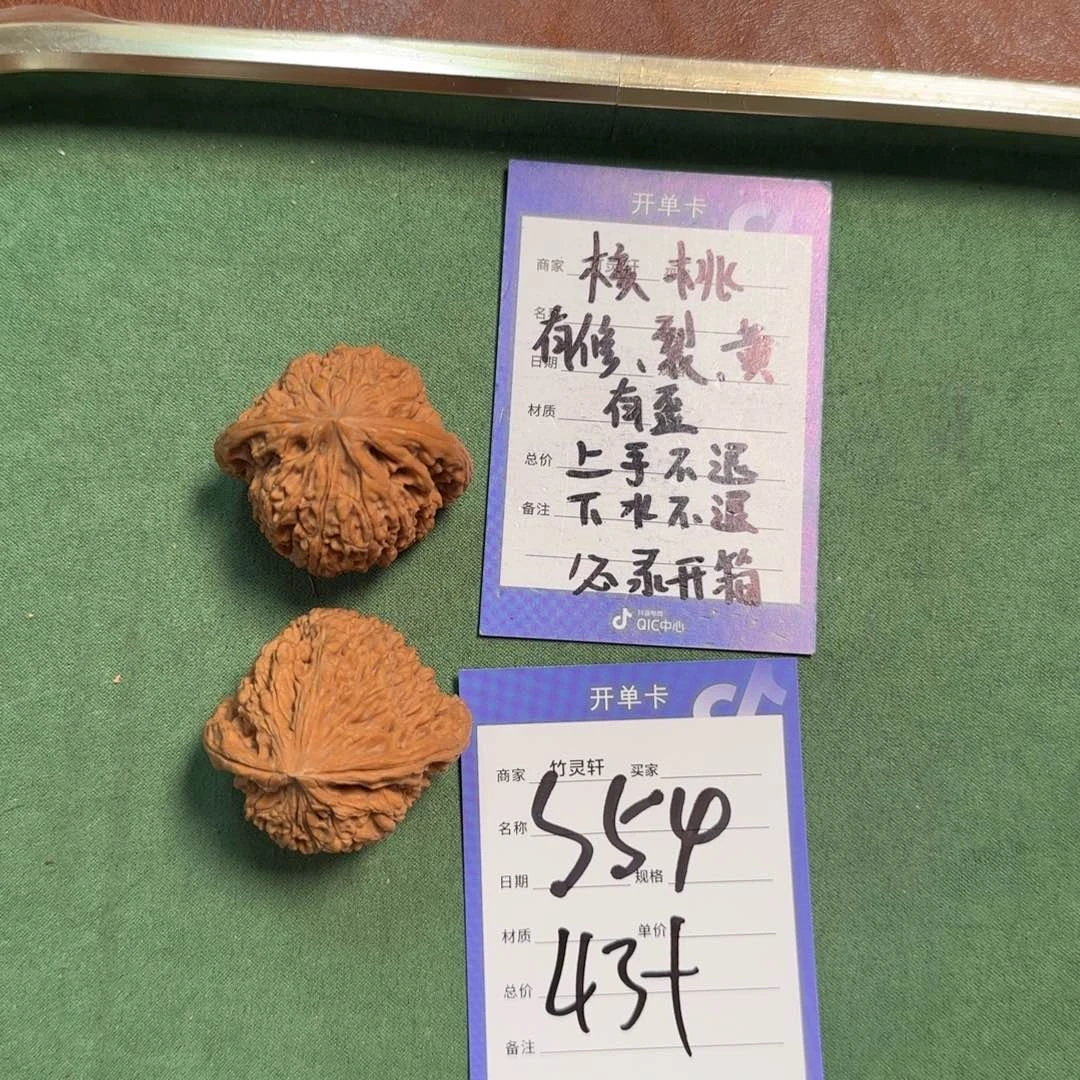 开单卡
商家 竹灵轩
核桃
名称
有修、裂、黄
日期
有歪
材质
总价 上手不退
备注 下水不退
必录开箱
抖音电商
QIC中心
开单卡
商家 竹灵轩 买家
名称 554
日期 规格
材质 单价
总价 43+
备注